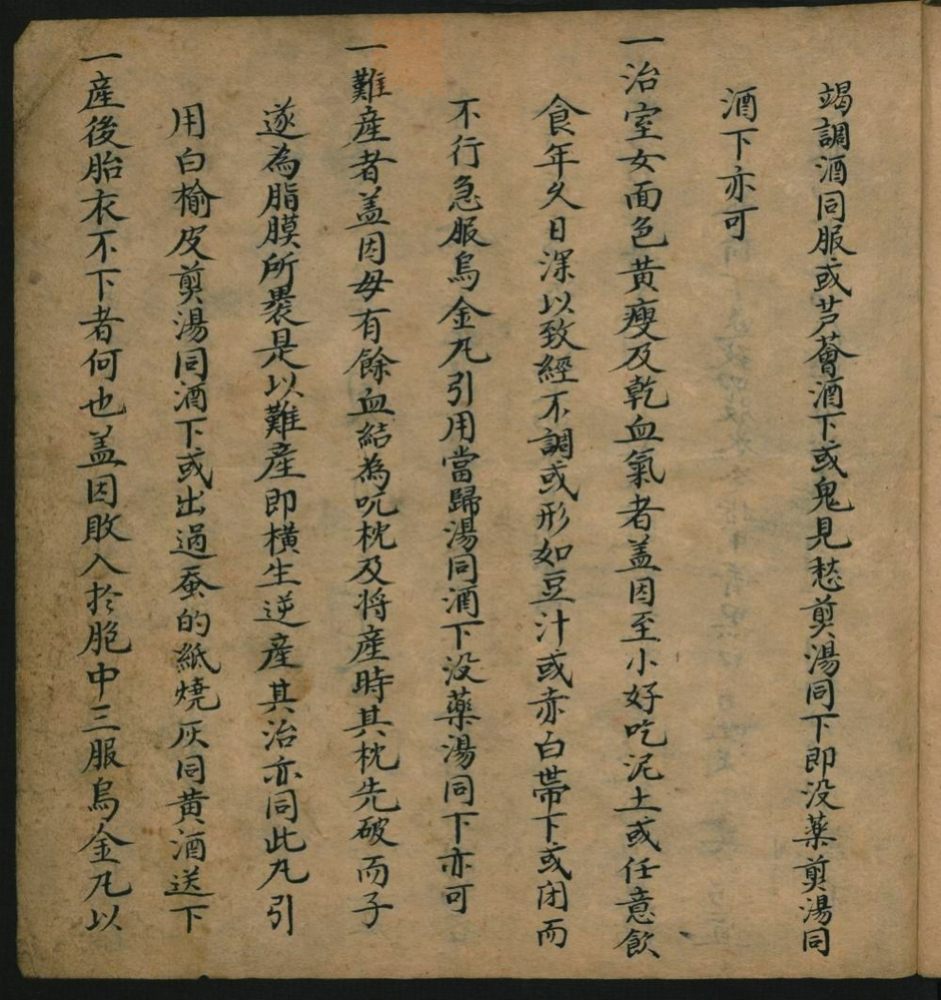 竭調酒同服或芦薈酒下或鬼見愁剪湯同下即没薬剪湯同
酒下亦可
一治室女面色黄瘦及乾血氣者盖因至小好吃泥土或任意飲
食年久日深以致經不調或形如豆汁或赤白帶下或闭而
不行急服烏金凡引用當歸湯同酒下没藥湯同下亦可
一難産者盖因母有餘血結為児枕及将産時其枕先破而子
遂為脂膜所褁是以難産即横生逆産其治亦同此凡引
用白榆皮剪湯同酒下或出過蚕的紙燒灰同黄酒送下
一産後胎衣不下者何也盖因敗入扵胞中三服烏金凡以